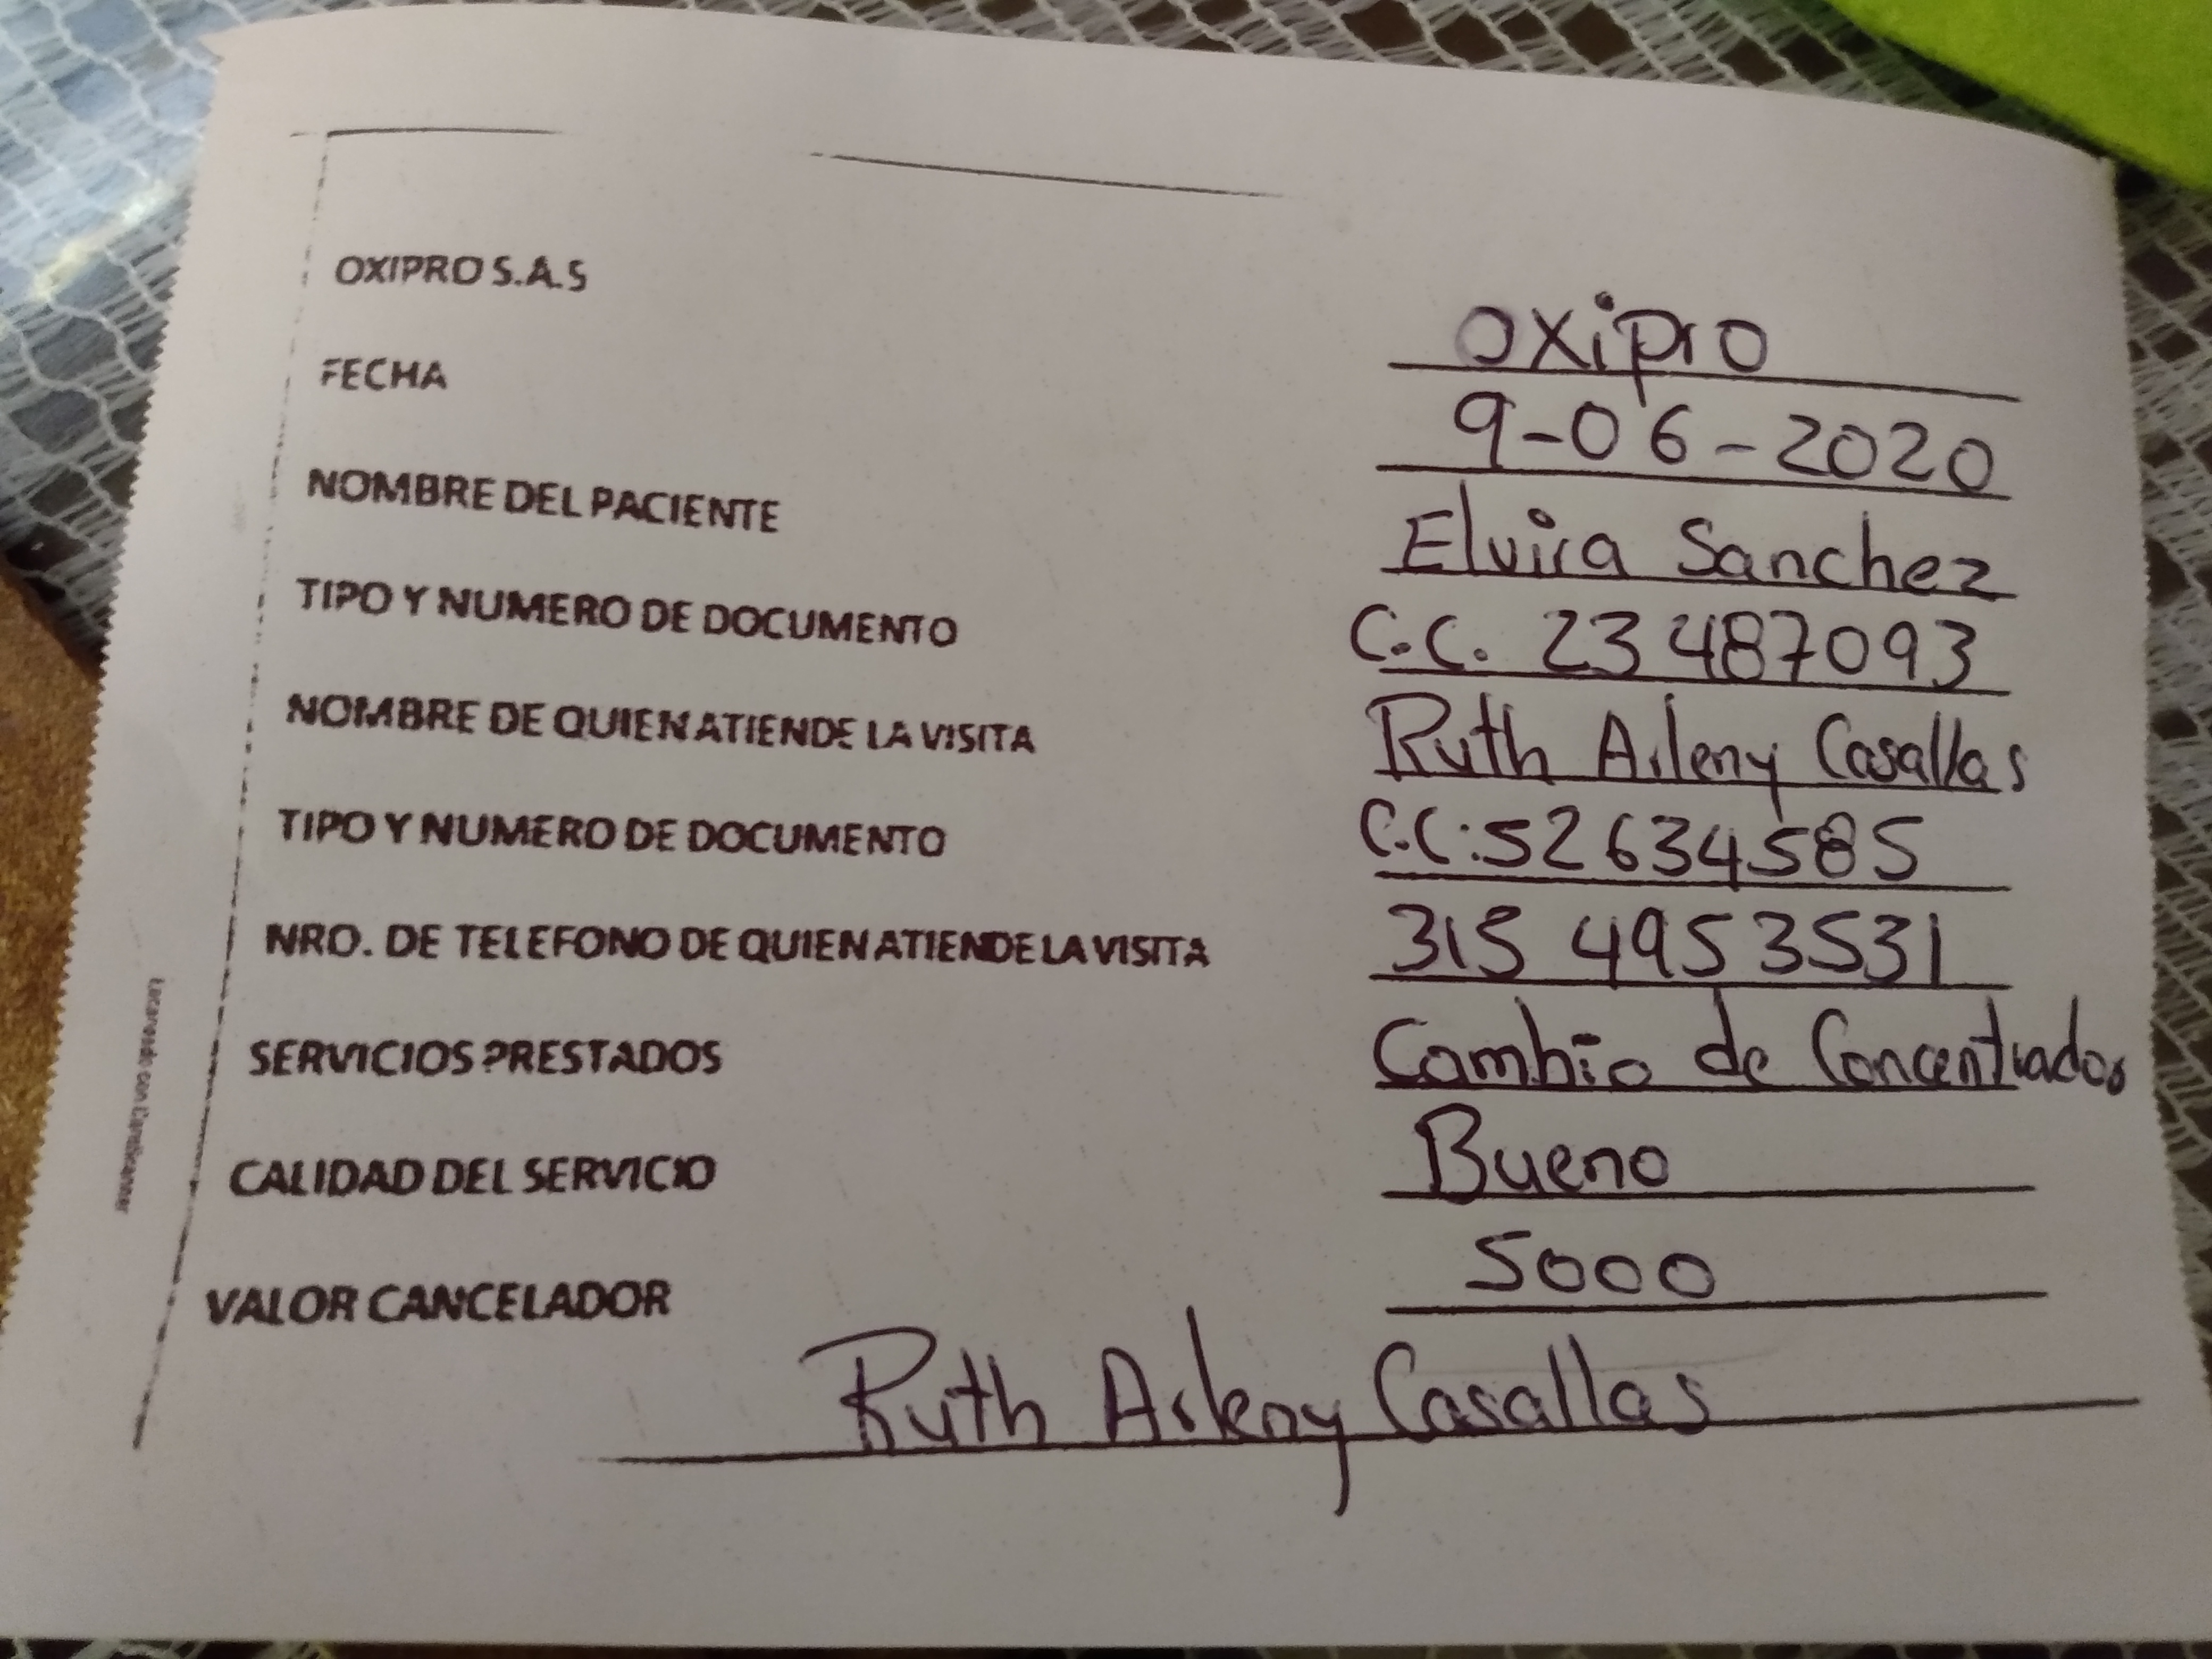 OXIPRO S.A.S
oxipro
FECHA
9-06-2020
NOMBRE DEL PACIENTE
Elvira Sanchez
TIPO Y NUMERO DE DOCUMENTO
C.C. 23487093
NOMBRE DE QUIEN ATIENDE LA VISITA
Ruth Arleny Casallas
TIPO Y NUMERO DE DOCUMENTO
C.C:52634585
NRO. DE TELEFONO DE QUIEN ATIENDE LA VISITA
315 4953531
SERVICIOS PRESTADOS
Cambio de Concentrador
CALIDAD DEL SERVICIO
Bueno
VALOR CANCELADOR
5000
Ruth Arleny Casallas
Escaneado con CamScanner